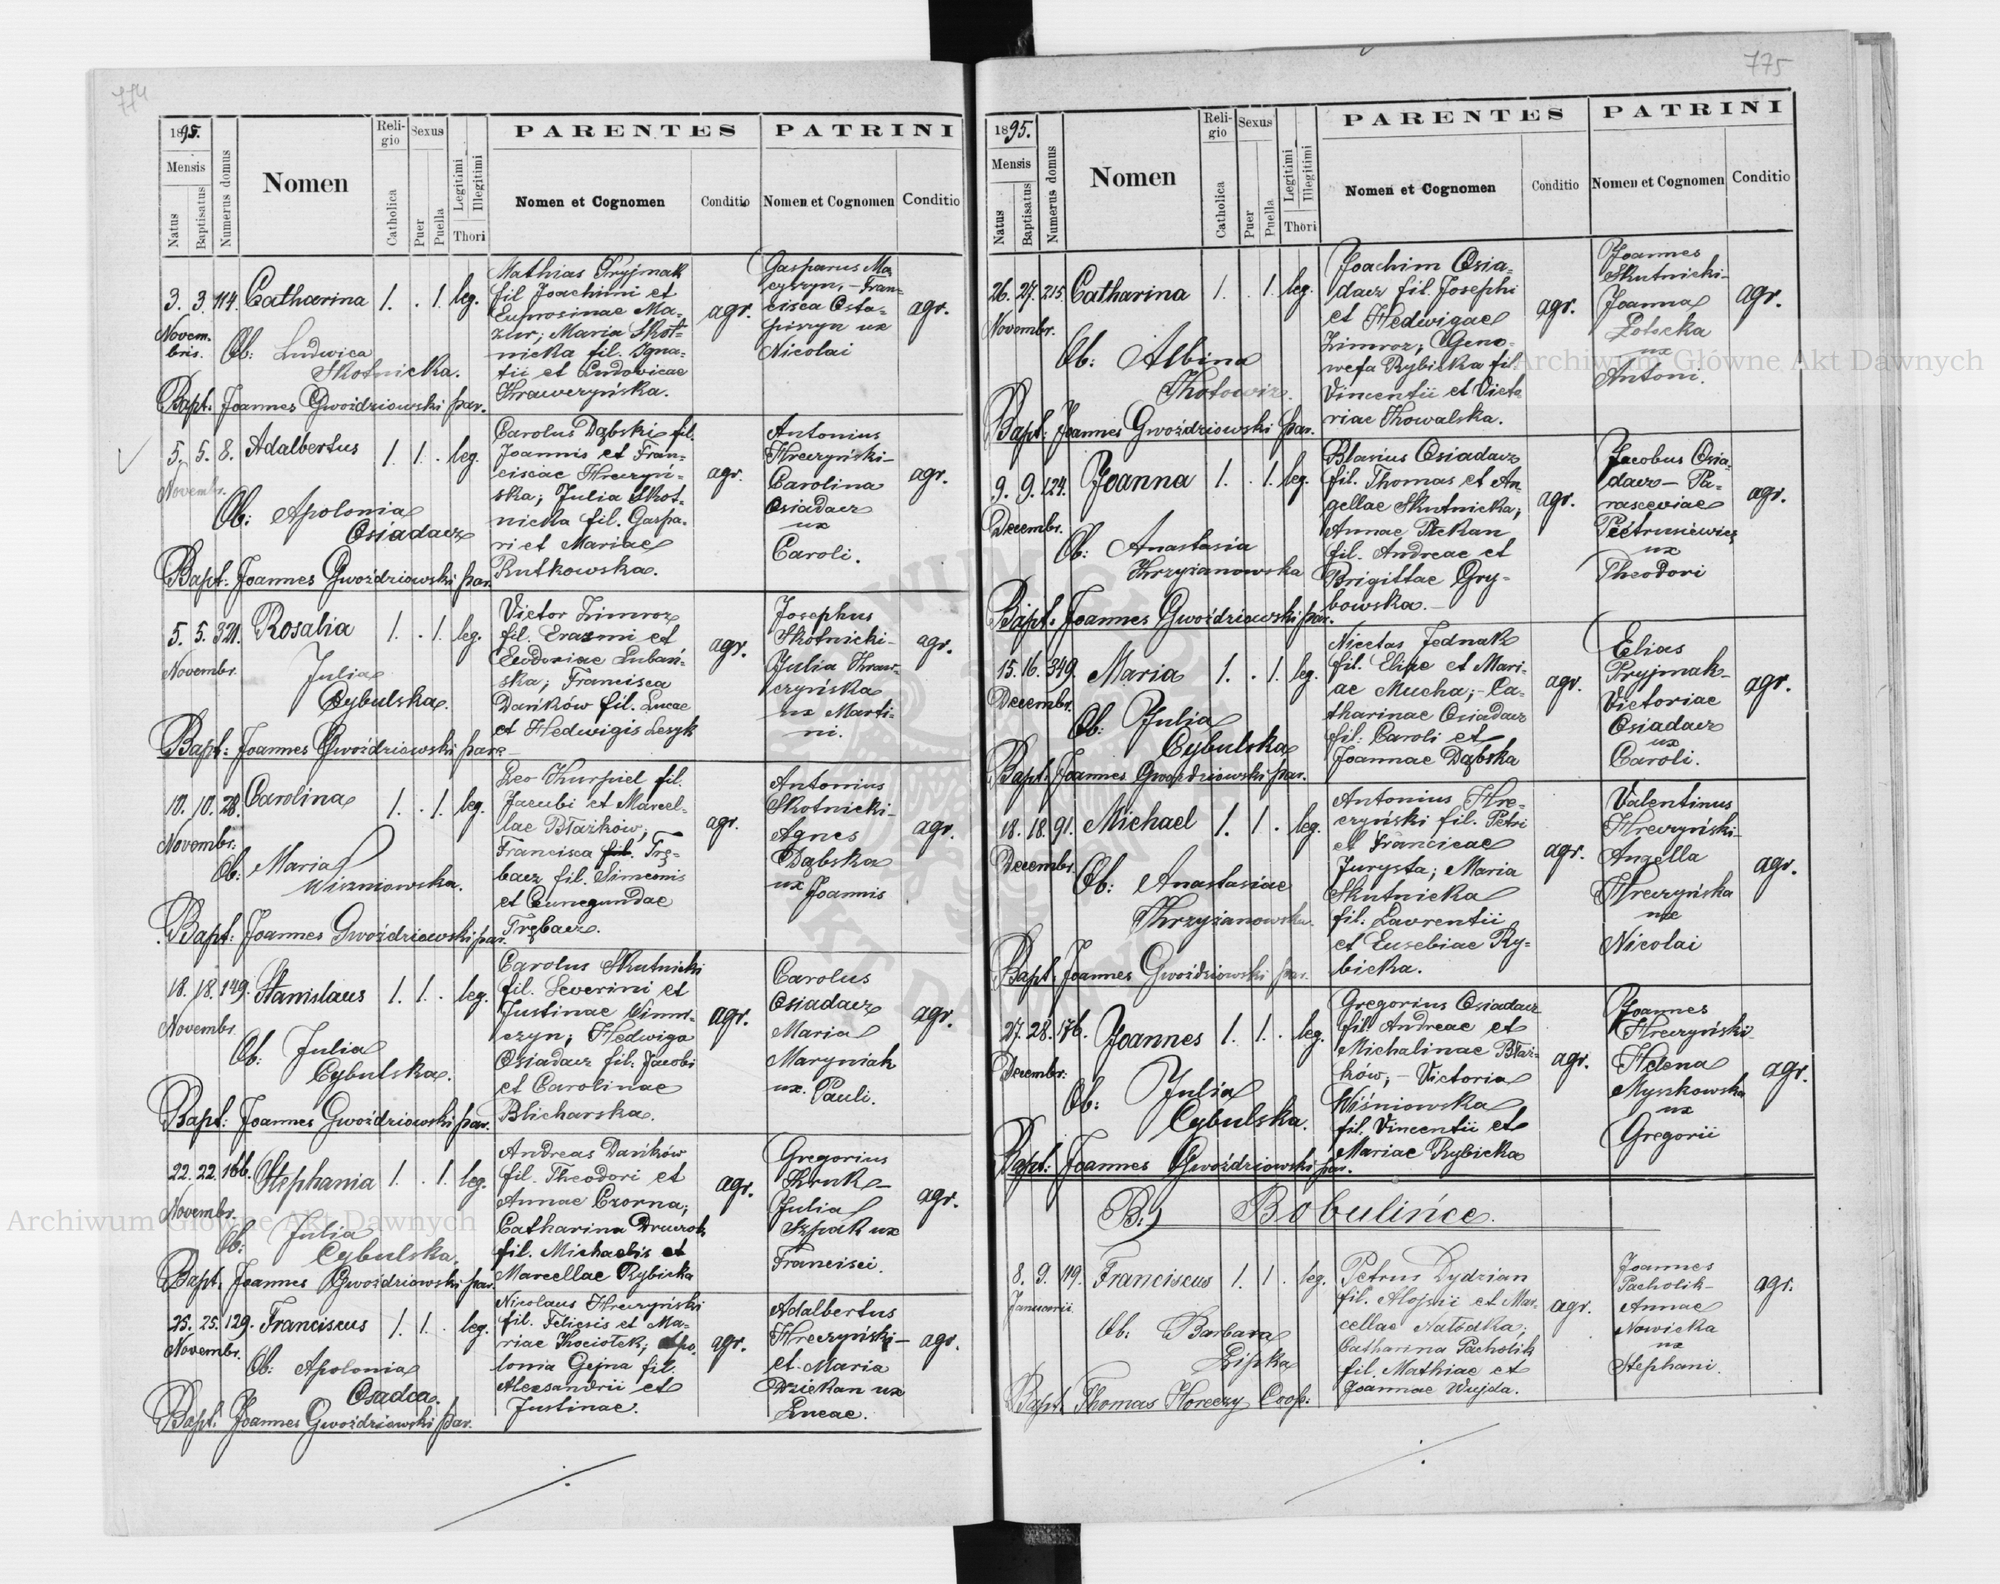 774
1895.
Mensis
Natus
Baptisatus
Numerus domus
Nomen
Religio
Catholica
Sexus
Puer
Puella
Legitimi
Illegitimi
Thori
PARENTES
Nomen et Cognomen
Conditio
PATRINI
Nomen et Cognomen
Conditio
3. 3. 114. Catharina 1. . 1. leg.
Novem-
bris.
Ob: Ludwica
Skotnicka.
Bapt. Joannes Gwoździowski par.
Mathias Pryjmak
fil Joachimi et
Euprosinae Ma-
zur; Maria Skot-
nicka fil. Igna-
tii et Ludovicae
Krawczyńska.
agr.
Gasparus Ma
czyszyn, - Fran-
cisca Osta-
piszyn ux
Nicolai
agr.
5. 5. 8. Adalbertus 1. 1. . leg.
Novembr.
Ob: Apolonia
Osiadacz
Bapt: Joannes Gwoździowski par.
Carolus Dąbski fil.
Joannis et Fran-
ciscae Hreczyń-
ska; Julia Skot-
nicka fil. Gaspa-
ri et Mariae
Rutkowska.
agr.
Antonius
Hreczyński-
Carolina
Osiadacz
ux
Caroli.
agr.
5. 5. 321. Rosalia 1. . 1. leg.
Novembr.
Julia
Cybulska.
Bapt: Joannes Gwoździowski par.
Victor Zimroz
fil. Erazmi et
Eudoxiae Lubań-
ska; Francisca
Dańków fil. Lucae
et Hedwigis Lesyk
agr.
Josephus
Skotnicki-
Julia Kraw-
czyńska
ux Marti-
ni.
agr.
10. 10. 28. Carolina 1. . 1. leg.
Novembr.
Ob: Maria
Wiszniowska.
Bapt: Joannes Gwoździowski par.
Leo Kurpiel fil.
Jacubi et Marcel-
lae Błażków,
Francisca fil. Trę-
bacz fil. Simeonis
et Cunegundae
Trębacz.
agr.
Antonius
Skotnicki-
Agnes
Dąbska
ux Joannis
agr.
18. 18. 149. Stanislaus 1. 1. . leg.
Novembr.
Ob: Julia
Cybulska.
Bapt: Joannes Gwoździowski par.
Carolus Skutnicki
fil. Severini et
Justinae Winni-
czyn; Hedwiga
Osiadacz fil. Jacobi
et Carolinae
Blicharska.
agr.
Carolus
Osiadacz
Maria
Maryniak
ux. Pauli.
agr.
22. 22. 166. Stephania 1. . 1. leg.
Novembr.
Ob: Julia
Cybulska.
Bapt. Joannes Gwoździowski par.
Andreas Dańków
fil. Theodori et
Annae Czorna;
Catharina
fil. Michaelis et
Marcellae Rybicka
agr.
Gregorius
Kruk-
Julia
Szpak ux
Francisci.
agr.
25. 25. 129. Franciscus 1. 1. . leg.
Novembr.
Ob: Apolonia
Osadca.
Bapt. Joannes Gwoździowski par.
Nicolaus Hreczyński
fil. Felicis et Ma-
riae Kociołek; Apo-
lonia Gejna fil
Alexandrii et
Justinae.
agr.
Adalbertus
Hreczyński-
et Maria
Dziekan ux
Lucae.
agr.
775
1895.
Mensis
Natus
Baptisatus
Numerus domus
Nomen
Religio
Catholica
Sexus
Puer
Puella
Legitimi
Illegitimi
Thori
PARENTES
Nomen et Cognomen
Conditio
PATRINI
Nomen et Cognomen
Conditio
26. 27. 215. Catharina 1. . 1. leg.
Novembr.
Ob: Albina
Kotowicz.
Bapt: Joannes Gwoździowski par.
Joachim Osia-
dacz fil. Josephi
et Hedwigae
Zimroz; Geno-
wefa Rybicka fil.
Vincentii et Victo
riae Kowalska.
agr.
Joannes
Skutnicki-
Joanna
Potocka
ux
Antoni.
agr.
9. 9. 124. Joanna 1. . 1. leg.
Decembr.
Ob: Anastasia
Krzyżanowska
Bapt: Joannes Gwoździowski par.
Blasius Osiadacz
fil. Thomas et An-
gellae Skutnicka;
Annae Pekan
fil. Andreae et
Brigittae Gry-
bowska.
agr.
Jacobus Osia-
dacz - Pa-
rasceviae
Pietrusiewicz
ux
Theodori
agr.
15. 16. 349. Maria 1. . 1. leg.
Decembr.
Ob: Julia
Cybulska
Bapt. Joannes Gwoździowski par.
Nicetas Jednak
fil. Eliae et Mari-
ae Mucha; - Ca-
tharinae Osiadacz
fil: Caroli et
Joannae Dąbska
agr.
Elias
Pryjmak-
Victoriae
Osiadacz
ux
Caroli.
agr.
18. 18. 91. Michael 1. 1. . leg.
Decembr.
Ob: Anastasiae
Krzyżanowska.
Bapt. Joannes Gwoździowski par.
Antonius Hre-
czyński fil. Petri
et Francicae
Jurysta; Maria
Skutnicka
fil. Lavrentii
et Eusebiae Ry-
bicka.
agr.
Valentinus
Hreczyński-
Angella
Hreczyńska
ux
Nicolai
agr.
27. 28. 176. Joannes 1. 1. . leg.
Decembr:
Ob: Julia
Cybulska.
Bapt: Joannes Gwoździowski par.
Gregorius Osiadacz
fil. Andreae et
Michalinae Błaż-
ków, - Victoria
Wiśniowska
fil. Vincentii et
Mariae Rybicka
agr.
Joannes
Hreczyński-
Helena
Myszkowska
ux
Gregorii
agr.
B.) Bobulińce.
8. 9. 119. Franciscus 1. 1. . leg.
Januarii
Ob: Barbara
Lipka
Bapt. Thomas Horeczy Coop.
Petrus Dydzian
fil. Alojsii et Mar-
cellae Natodka;
Catharina Pacholik
fil. Mathiae et
Joannae Wujda.
agr.
Joannes
Pacholik-
Annae
Nowicka
ux
Stephani.
agr.
Archiwum Główne Akt Dawnych
Archiwum Główne Akt Dawnych